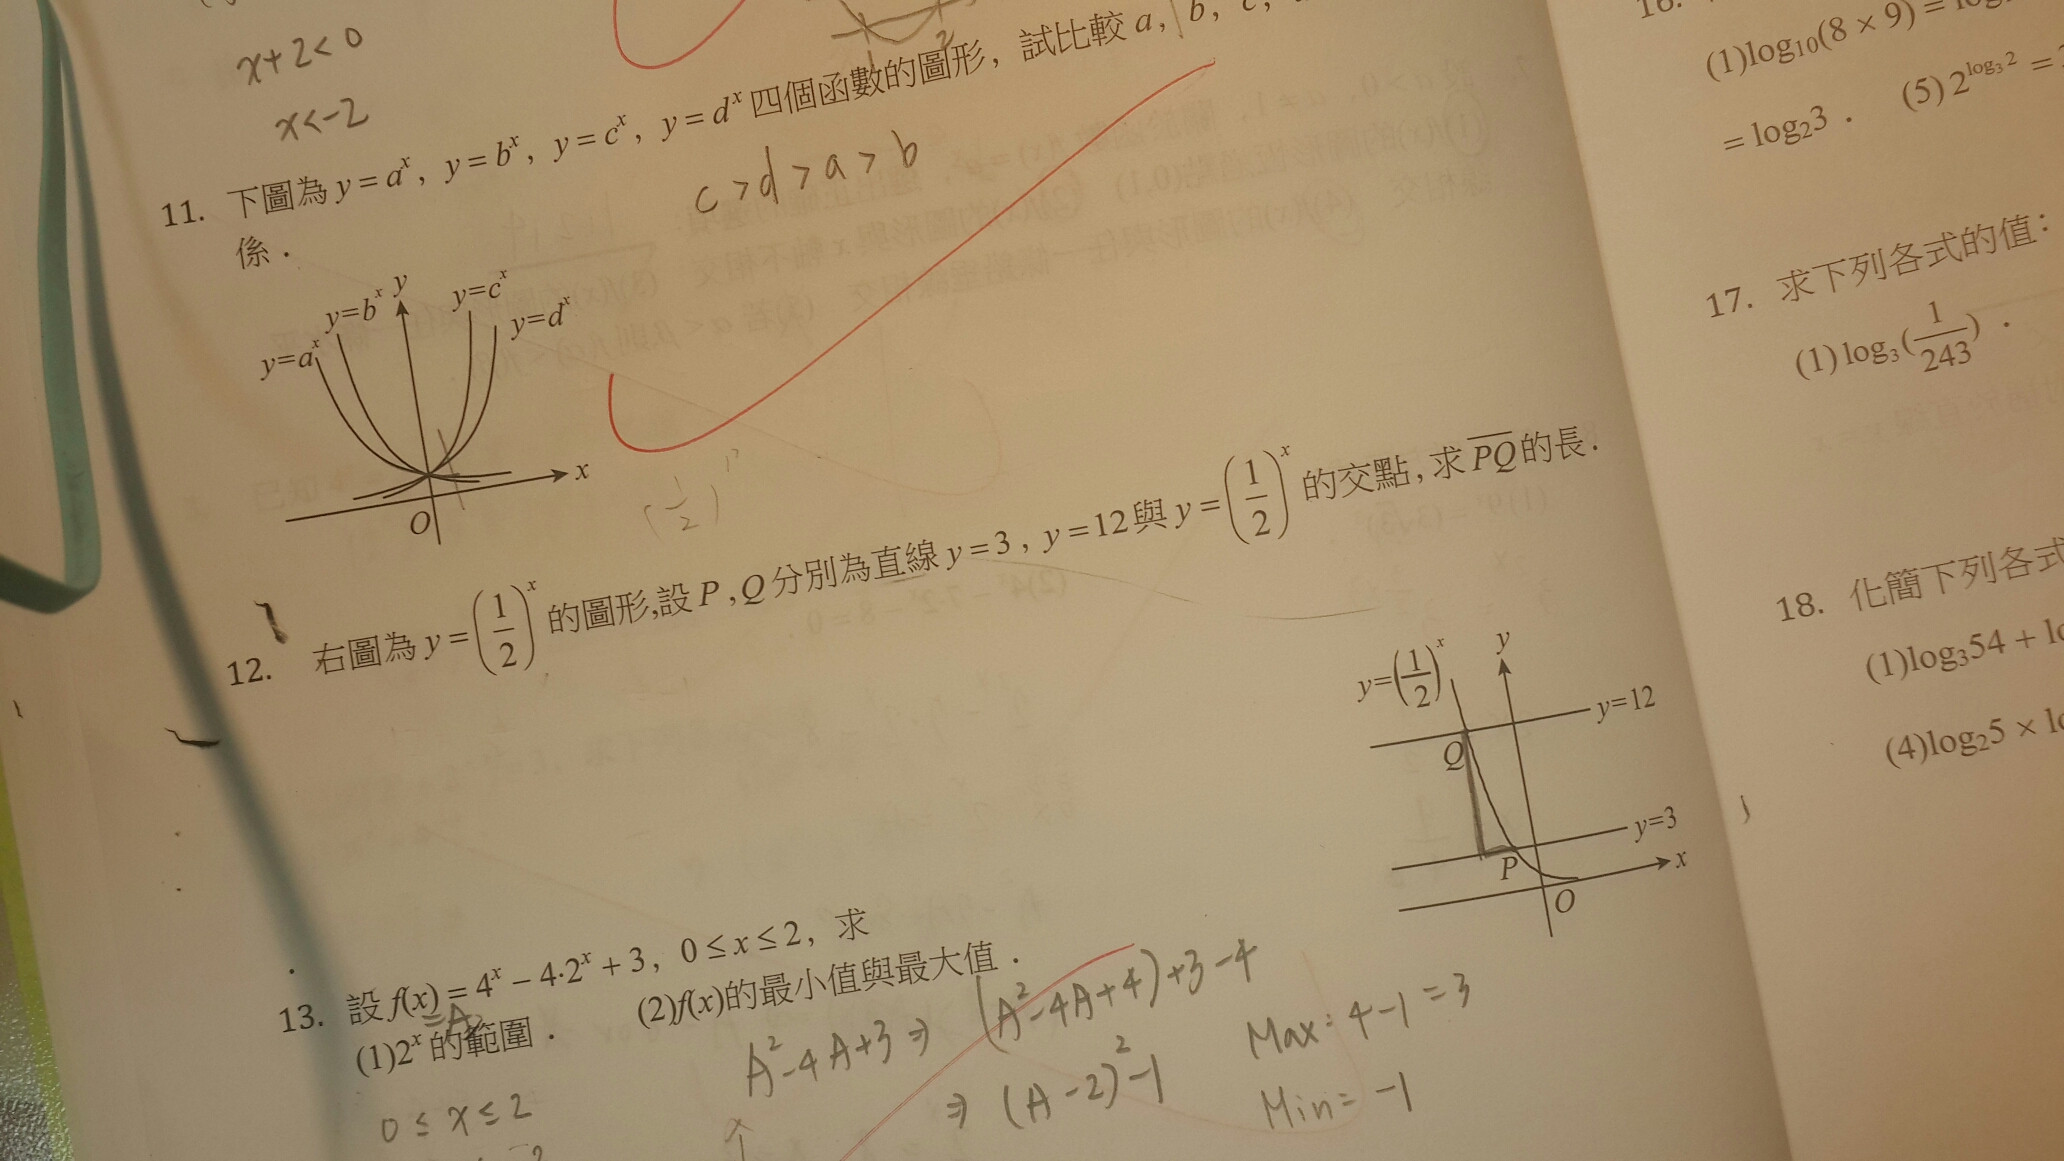 x+2<0
x<-2
11. 下圖為 y=a^x, y=b^x, y=c^x, y=d^x 四個函數的圖形, 試比較 a, b, c,
係.
c>d>a>b
y=a^x
y=b^x
y
y=c^x
y=d^x
x
O
(1/2)
12. 右圖為 y=(1/2)^x 的圖形,設 P, Q 分別為直線 y=3, y=12 與 y=(1/2)^x 的交點, 求 PQ 的長.
y=(1/2)^x
y
y=12
Q
y=3
P
x
O
13. 設 f(x)=4^x-4·2^x+3, 0≤x≤2, 求
(1)2^x 的範圍. (2)f(x)的最小值與最大值.
=A
A^2-4A+3 ⇒ (A^2-4A+4)+3-4
⇒ (A-2)^2-1
Max: 4-1=3
Min= -1
0≤x≤2
16.
(1)log10(8×9)=
=log23. (5)2^log32=
17. 求下列各式的值:
(1)log3(1/243).
18. 化簡下列各式
(1)log354+
(4)log25×